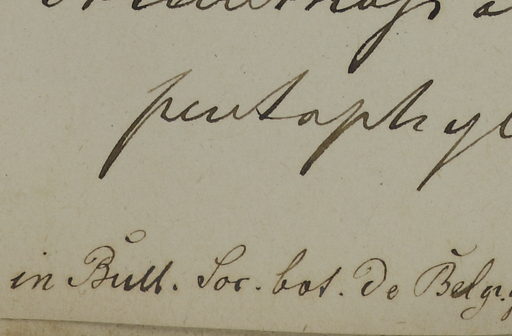 pentaphyl
in Bull. Soc. bot. de Belg.